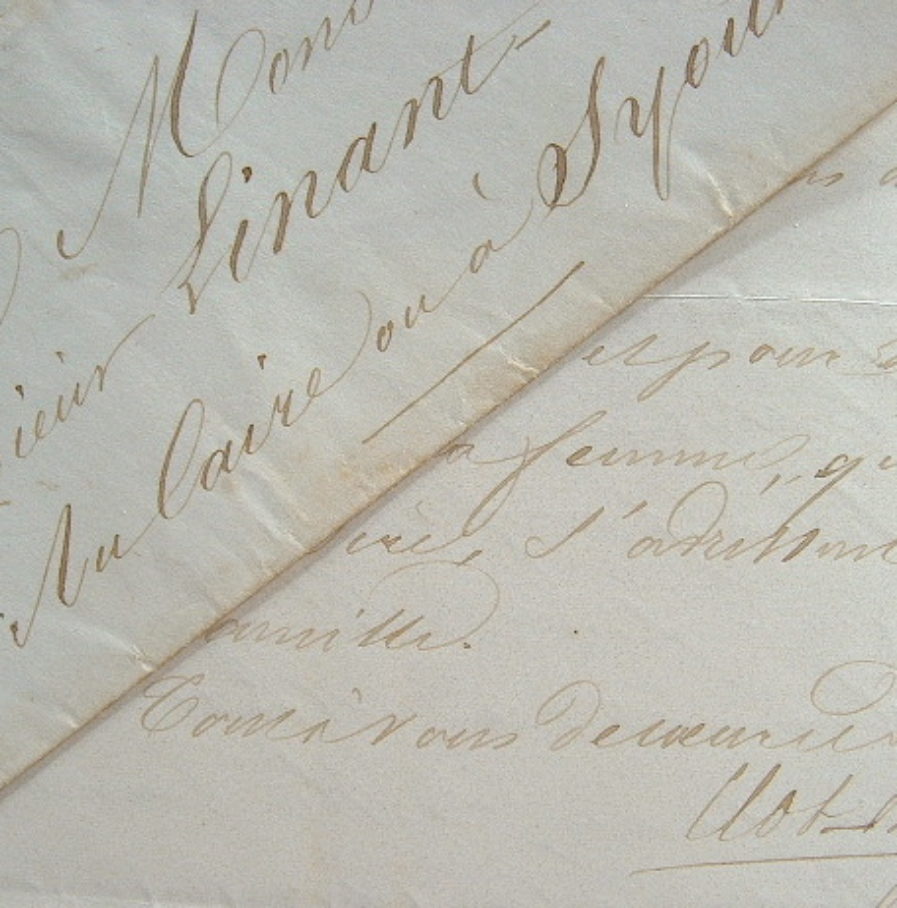 Mons
ieur Linant
Au Caire ou à Syou
et pour
a femme, qu
s'adressent
famille.
Tout à vous de cœur
Clot-B